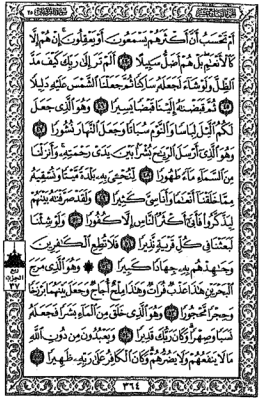 أَمْ تَحْسَبُ أَنَّ أَكْثَرَهُمْ يَسْمَعُونَ أَوْ يَعْقِلُونَ إِنْ هُمْ إِلَّا
كَالْأَنْعَٰمِ بَلْ هُمْ أَضَلُّ سَبِيلًا ٤٤ أَلَمْ تَرَ إِلَىٰ رَبِّكَ كَيْفَ مَدَّ
ٱلظِّلَّ وَلَوْ شَآءَ لَجَعَلَهُۥ سَاكِنًا ثُمَّ جَعَلْنَا ٱلشَّمْسَ عَلَيْهِ دَلِيلًا
٤٥ ثُمَّ قَبَضْنَٰهُ إِلَيْنَا قَبْضًا يَسِيرًا ٤٦ وَهُوَ ٱلَّذِى جَعَلَ
لَكُمُ ٱلَّيْلَ لِبَاسًا وَٱلنَّوْمَ سُبَاتًا وَجَعَلَ ٱلنَّهَارَ نُشُورًا ٤٧
وَهُوَ ٱلَّذِىٓ أَرْسَلَ ٱلرِّيَٰحَ بُشْرًۢا بَيْنَ يَدَىْ رَحْمَتِهِۦ وَأَنزَلْنَا
مِنَ ٱلسَّمَآءِ مَآءً طَهُورًا ٤٨ لِّنُحْـِۧىَ بِهِۦ بَلْدَةً مَّيْتًا وَنُسْقِيَهُۥ
مِمَّا خَلَقْنَآ أَنْعَٰمًا وَأَنَاسِىَّ كَثِيرًا ٤٩ وَلَقَدْ صَرَّفْنَٰهُ بَيْنَهُمْ
لِيَذَّكَّرُوا۟ فَأَبَىٰٓ أَكْثَرُ ٱلنَّاسِ إِلَّا كُفُورًا ٥٠ وَلَوْ شِئْنَا
لَبَعَثْنَا فِى كُلِّ قَرْيَةٍ نَّذِيرًا ٥١ فَلَا تُطِعِ ٱلْكَٰفِرِينَ
وَجَٰهِدْهُم بِهِۦ جِهَادًا كَبِيرًا ٥٢ ۞ وَهُوَ ٱلَّذِى مَرَجَ
ٱلْبَحْرَيْنِ هَٰذَا عَذْبٌ فُرَاتٌ وَهَٰذَا مِلْحٌ أُجَاجٌ وَجَعَلَ بَيْنَهُمَا بَرْزَخًا
وَحِجْرًا مَّحْجُورًا ٥٣ وَهُوَ ٱلَّذِى خَلَقَ مِنَ ٱلْمَآءِ بَشَرًا فَجَعَلَهُۥ
نَسَبًا وَصِهْرًا وَكَانَ رَبُّكَ قَدِيرًا ٥٤ وَيَعْبُدُونَ مِن دُونِ ٱللَّهِ
مَا لَا يَنفَعُهُمْ وَلَا يَضُرُّهُمْ وَكَانَ ٱلْكَافِرُ عَلَىٰ رَبِّهِۦ ظَهِيرًا ٥٥
ربع
الحزب
٣٧
٣٦٤